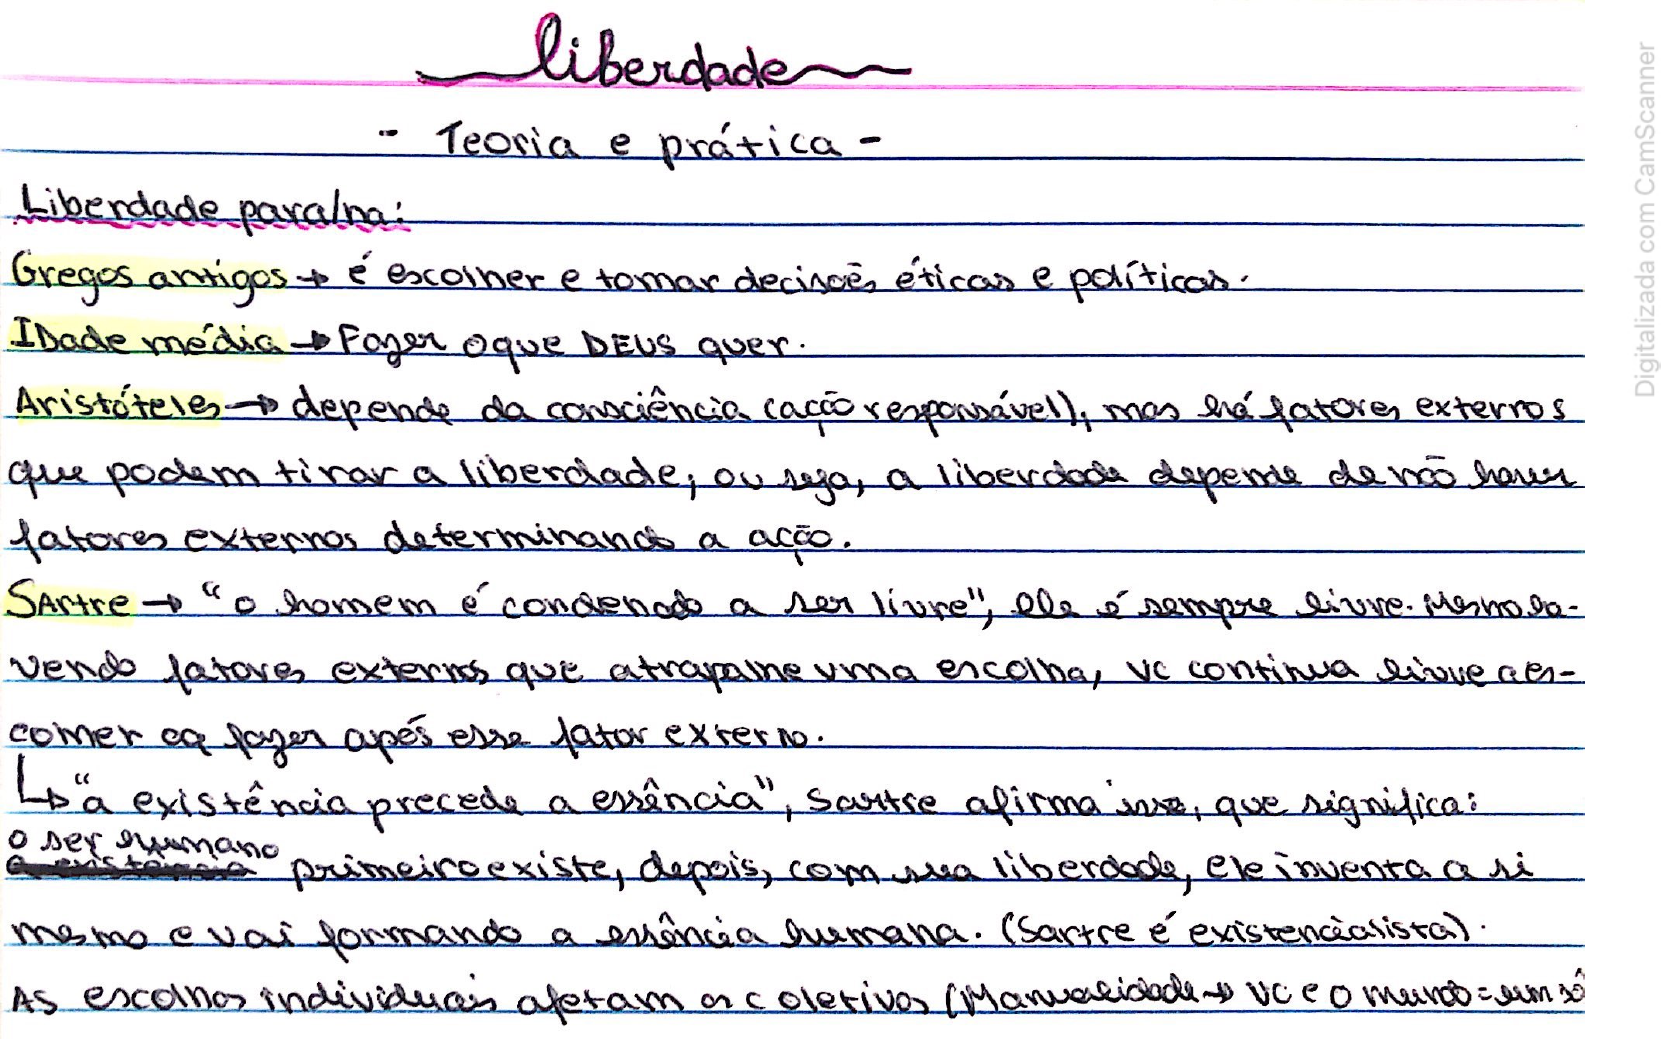 liberdade
- Teoria e prática -
Liberdade para/na:
Gregos antigos → é escolher e tomar decisões éticas e políticas.
IDade média → Fazer o que DEUS quer.
Aristóteles → depende da consciência (acção responsável), mas há fatores externos
que podem tirar a liberdade, ou seja, a liberdade depende de não haver
fatores externos determinando a acção.
SArtre → "o homem é condenado a ser livre", ele é sempre livre. Mesmo ha-
vendo fatores externos que atrapalhe uma escolha, vc continua livre a es-
colher oq fazer após esse fator externo.
↳ "a existência precede a essência", Sartre afirma isso, que significa:
o ser humano
primeiro existe, depois, com sua liberdade, ele inventa a si
mesmo e vai formando a essência humana. (Sartre é existencialista).
As escolhas individuais afetam os coletivos → vc e o mundo = um só
Digitalizada com CamScanner